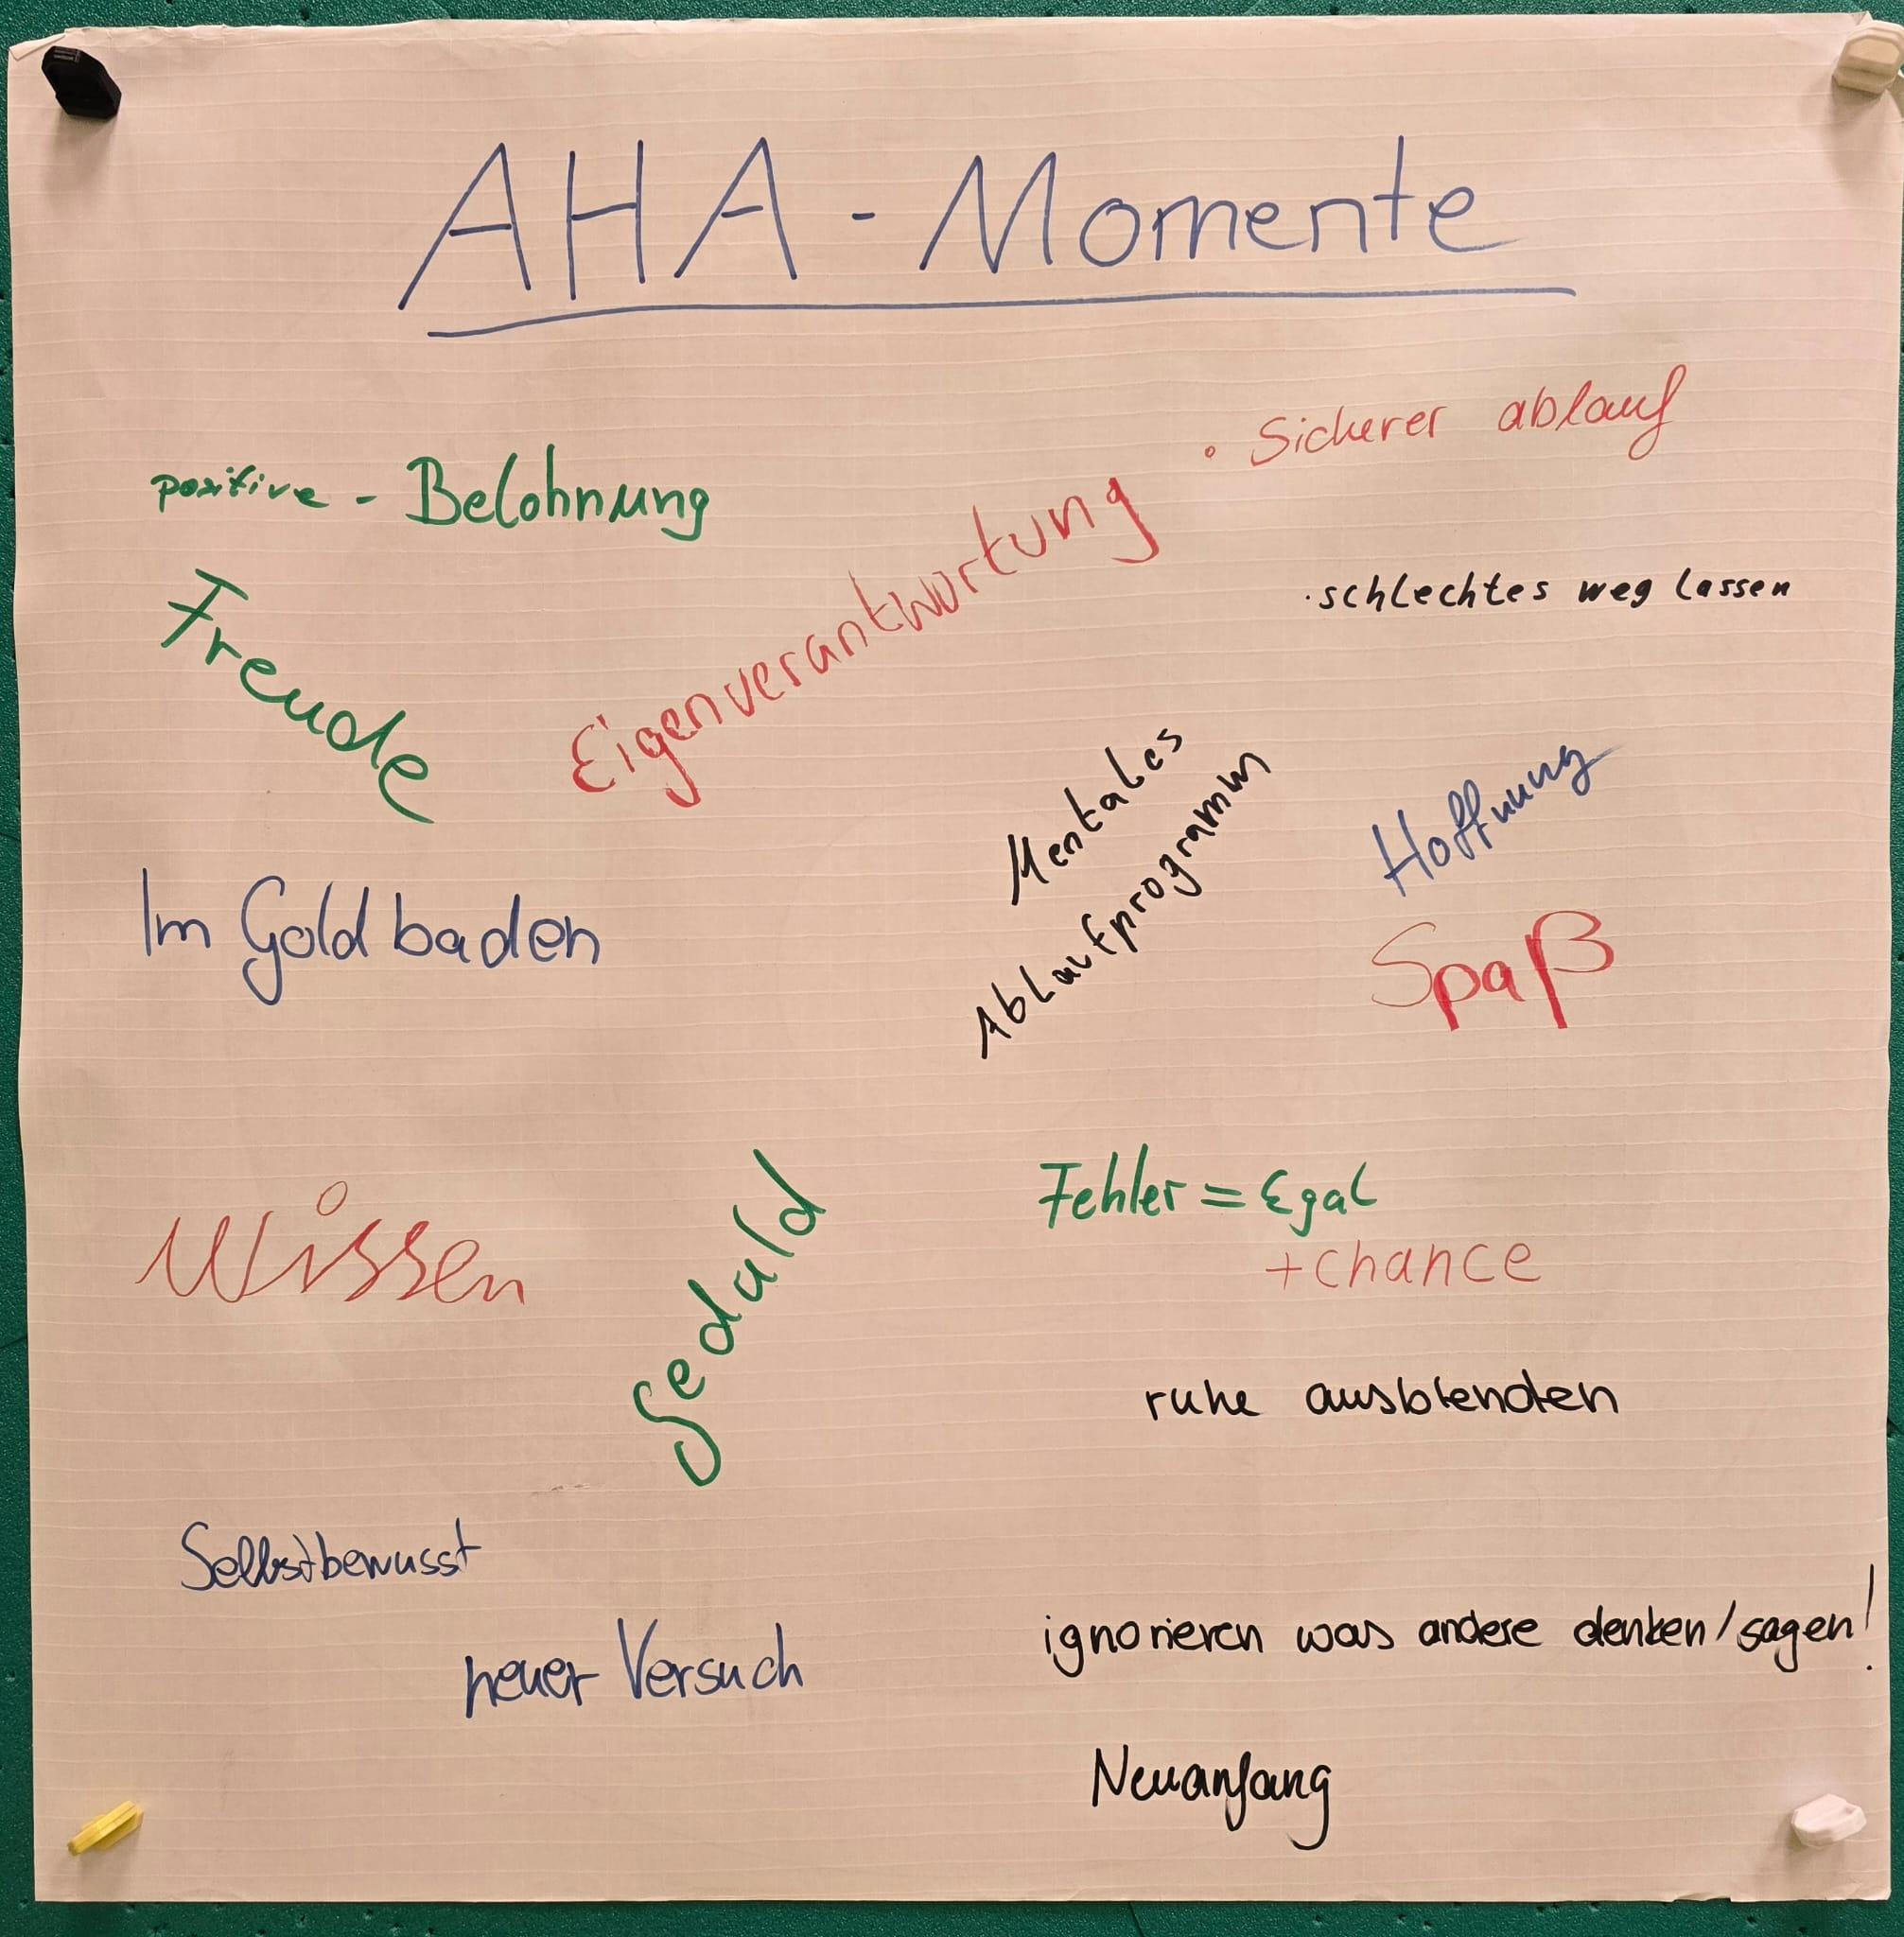 AHA - Momente
• Sicherer ablauf
positive - Belohnung
Eigenverantwortung
· schlechtes weg lassen
Freude
Mentales
Ablaufprogramm
Hoffnung
Im Gold baden
Spaß
Wissen
Geduld
Fehler = Egal
+ chance
ruhe ausblenden
Selbstbewusst
neuer Versuch
ignorieren was andere denken/sagen!
Neuanfang